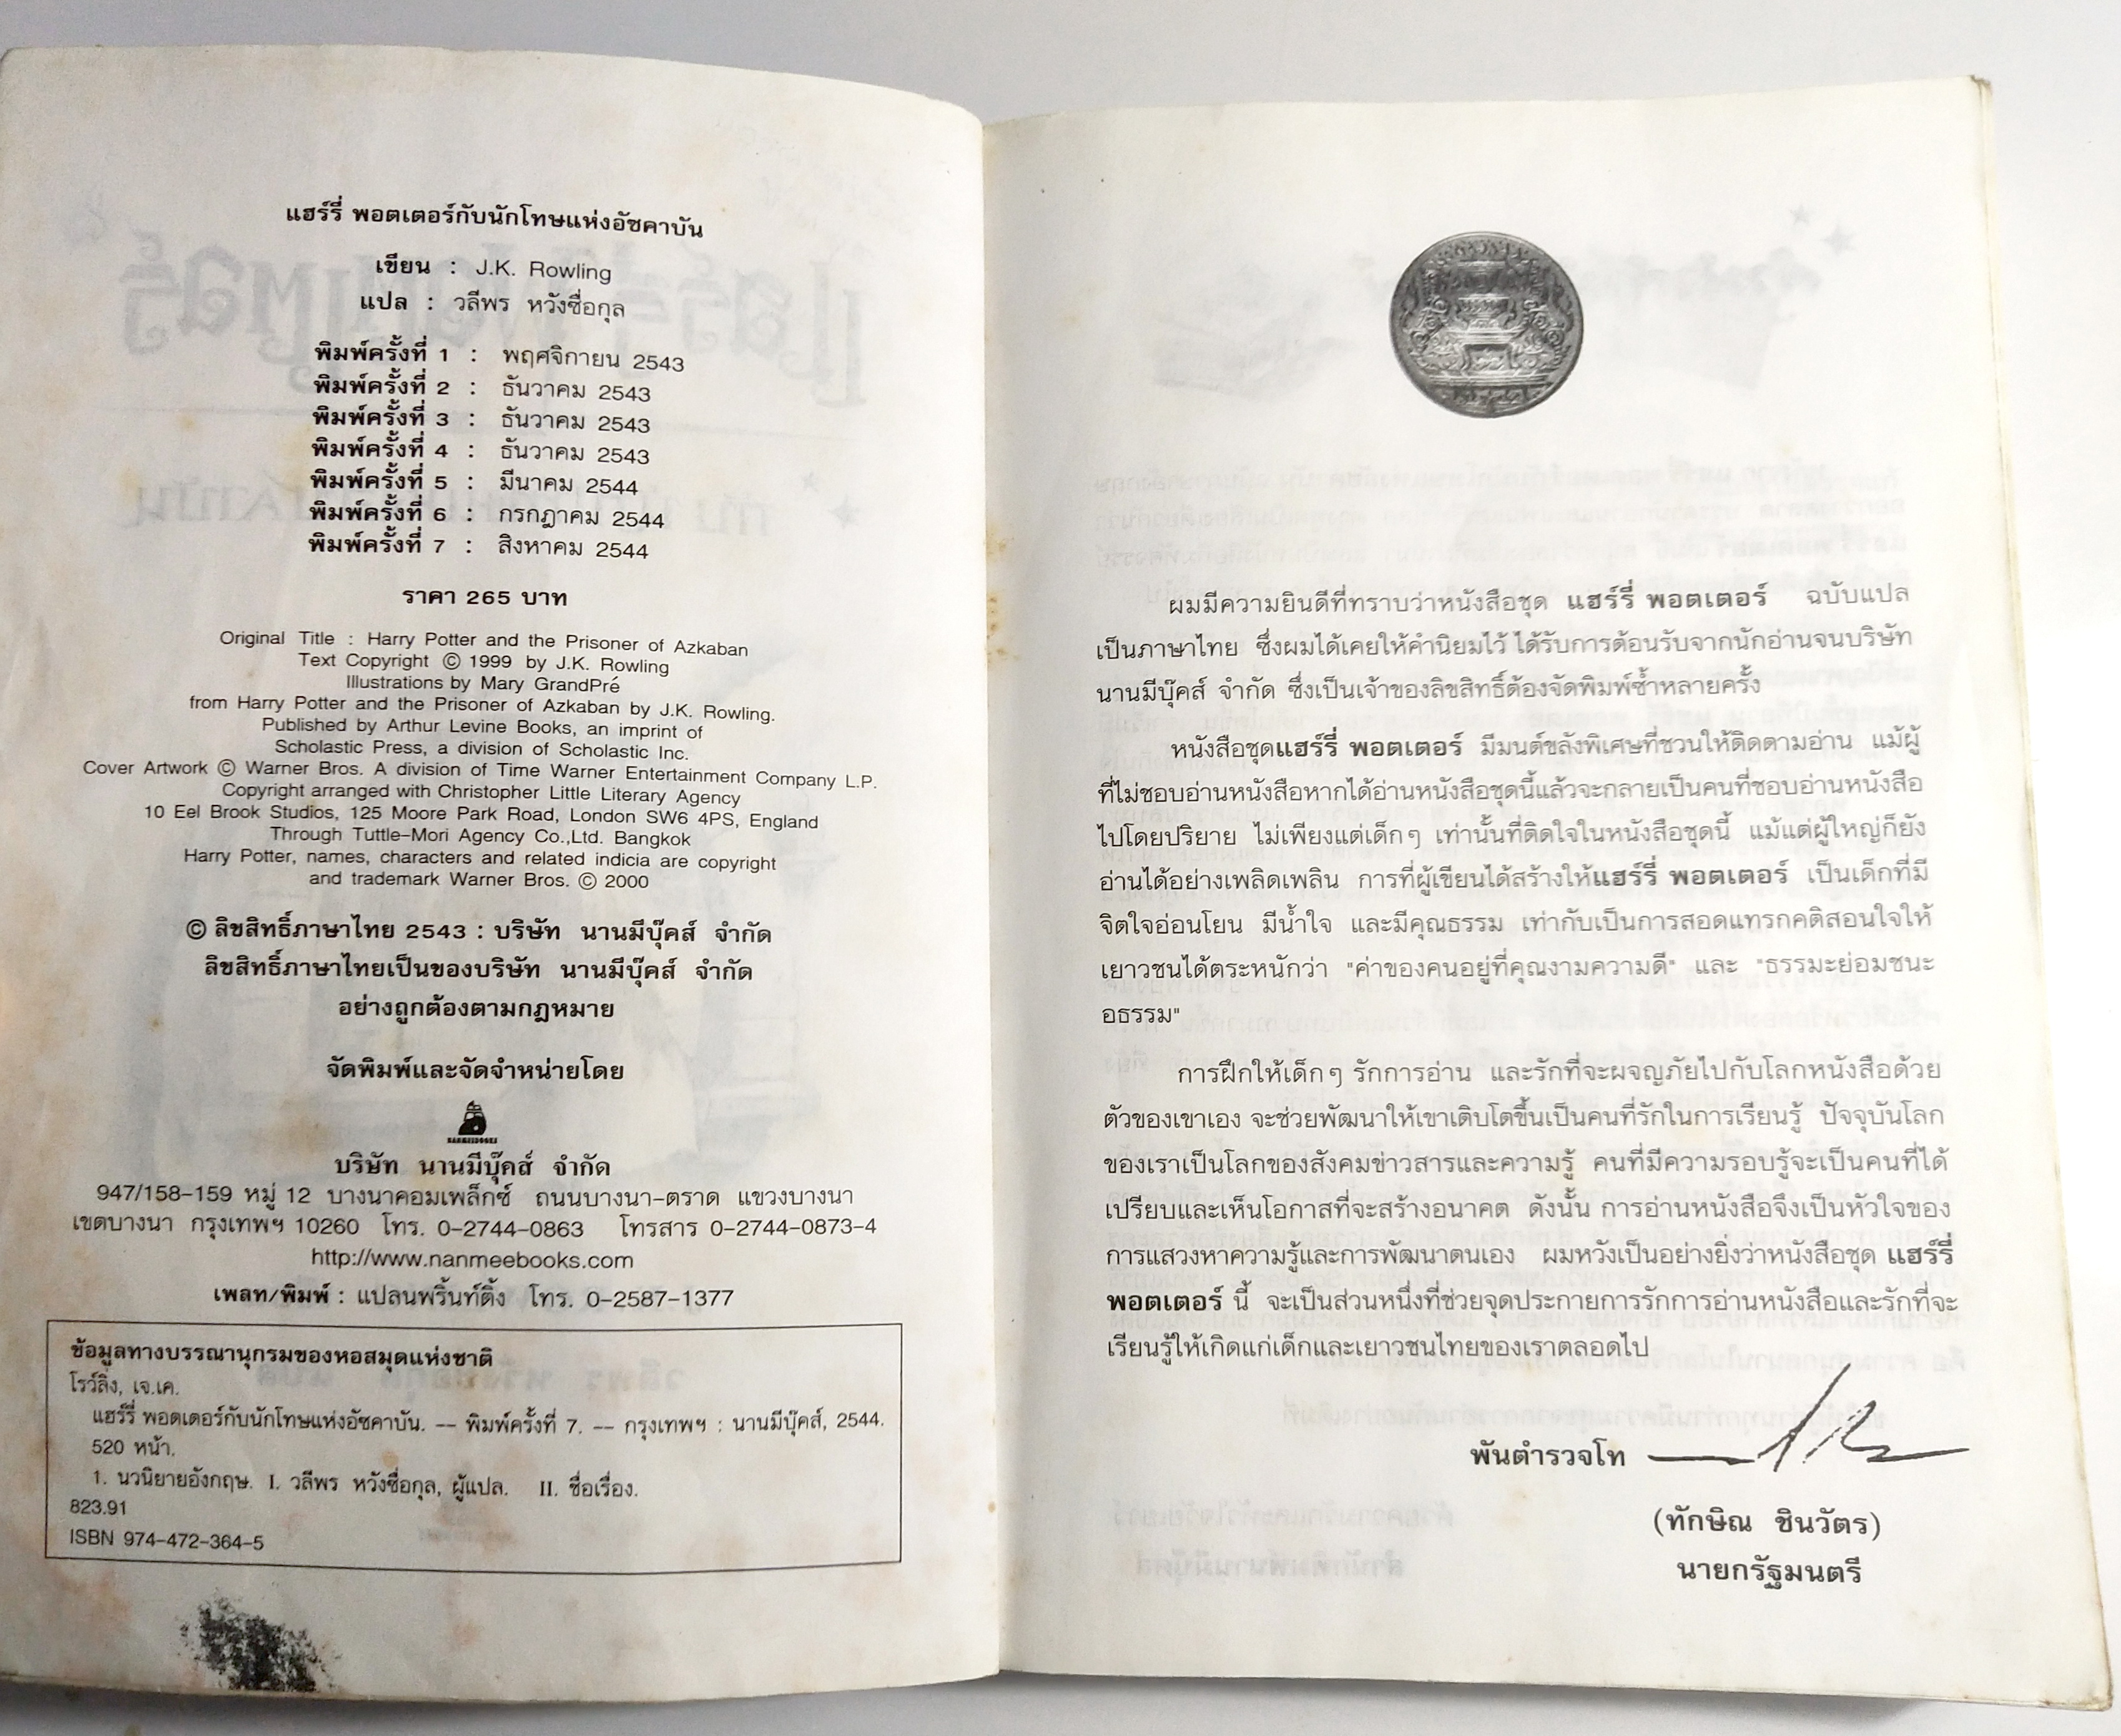 แฮร์รี่ พอตเตอร์กับนักโทษแห่งอัซคาบัน
เขียน : J.K. Rowling
แปล : วลีพร หวังซื่อกุล
พิมพ์ครั้งที่ 1 : พฤศจิกายน 2543
พิมพ์ครั้งที่ 2 : ธันวาคม 2543
พิมพ์ครั้งที่ 3 : ธันวาคม 2543
พิมพ์ครั้งที่ 4 : ธันวาคม 2543
พิมพ์ครั้งที่ 5 : มีนาคม 2544
พิมพ์ครั้งที่ 6 : กรกฎาคม 2544
พิมพ์ครั้งที่ 7 : สิงหาคม 2544
ราคา 265 บาท
Original Title : Harry Potter and the Prisoner of Azkaban
Text Copyright © 1999 by J.K. Rowling
Illustrations by Mary GrandPré
from Harry Potter and the Prisoner of Azkaban by J.K. Rowling.
Published by Arthur Levine Books, an imprint of
Scholastic Press, a division of Scholastic Inc.
Cover Artwork © Warner Bros. A division of Time Warner Entertainment Company L.P.
Copyright arranged with Christopher Little Literary Agency
10 Eel Brook Studios, 125 Moore Park Road, London SW6 4PS, England
Through Tuttle-Mori Agency Co.,Ltd. Bangkok
Harry Potter, names, characters and related indicia are copyright
and trademark Warner Bros. © 2000
© ลิขสิทธิ์ภาษาไทย 2543 : บริษัท นานมีบุ๊คส์ จำกัด
ลิขสิทธิ์ภาษาไทยเป็นของบริษัท นานมีบุ๊คส์ จำกัด
อย่างถูกต้องตามกฎหมาย
จัดพิมพ์และจัดจำหน่ายโดย
NANMEEBOOKS
บริษัท นานมีบุ๊คส์ จำกัด
947/158-159 หมู่ 12 บางนาคอมเพล็กซ์ ถนนบางนา-ตราด แขวงบางนา
เขตบางนา กรุงเทพฯ 10260 โทร. 0-2744-0863 โทรสาร 0-2744-0873-4
http://www.nanmeebooks.com
เพลท/พิมพ์ : แปลนพริ้นท์ติ้ง โทร. 0-2587-1377
ข้อมูลทางบรรณานุกรมของหอสมุดแห่งชาติ
โรว์ลิ่ง, เจ.เค.
แฮร์รี่ พอตเตอร์กับนักโทษแห่งอัซคาบัน. -- พิมพ์ครั้งที่ 7. -- กรุงเทพฯ : นานมีบุ๊คส์, 2544.
520 หน้า.
1. นวนิยายอังกฤษ. I. วลีพร หวังซื่อกุล, ผู้แปล. II. ชื่อเรื่อง.
823.91
ISBN 974-472-364-5
ผมมีความยินดีที่ทราบว่าหนังสือชุด แฮร์รี่ พอตเตอร์ ฉบับแปล
เป็นภาษาไทย ซึ่งผมได้เคยให้คำนิยมไว้ ได้รับการต้อนรับจากนักอ่านจนบริษัท
นานมีบุ๊คส์ จำกัด ซึ่งเป็นเจ้าของลิขสิทธิ์ต้องจัดพิมพ์ซ้ำหลายครั้ง
หนังสือชุดแฮร์รี่ พอตเตอร์ มีมนต์ขลังพิเศษที่ชวนให้ติดตามอ่าน แม้ผู้
ที่ไม่ชอบอ่านหนังสือหากได้อ่านหนังสือชุดนี้แล้วจะกลายเป็นคนที่ชอบอ่านหนังสือ
ไปโดยปริยาย ไม่เพียงแต่เด็กๆ เท่านั้นที่ติดใจในหนังสือชุดนี้ แม้แต่ผู้ใหญ่ก็ยัง
อ่านได้อย่างเพลิดเพลิน การที่ผู้เขียนได้สร้างให้แฮร์รี่ พอตเตอร์ เป็นเด็กที่มี
จิตใจอ่อนโยน มีน้ำใจ และมีคุณธรรม เท่ากับเป็นการสอดแทรกคติสอนใจให้
เยาวชนได้ตระหนักว่า "ค่าของคนอยู่ที่คุณงามความดี" และ "ธรรมะย่อมชนะ
อธรรม"
การฝึกให้เด็กๆ รักการอ่าน และรักที่จะผจญภัยไปกับโลกหนังสือด้วย
ตัวของเขาเอง จะช่วยพัฒนาให้เขาเติบโตขึ้นเป็นคนที่รักในการเรียนรู้ ปัจจุบันโลก
ของเราเป็นโลกของสังคมข่าวสารและความรู้ คนที่มีความรอบรู้จะเป็นคนที่ได้
เปรียบและเห็นโอกาสที่จะสร้างอนาคต ดังนั้น การอ่านหนังสือจึงเป็นหัวใจของ
การแสวงหาความรู้และการพัฒนาตนเอง ผมหวังเป็นอย่างยิ่งว่าหนังสือชุด แฮร์รี่
พอตเตอร์ นี้ จะเป็นส่วนหนึ่งที่ช่วยจุดประกายการรักการอ่านหนังสือและรักที่จะ
เรียนรู้ให้เกิดแก่เด็กและเยาวชนไทยของเราตลอดไป
พันตำรวจโท
(ทักษิณ ชินวัตร)
นายกรัฐมนตรี